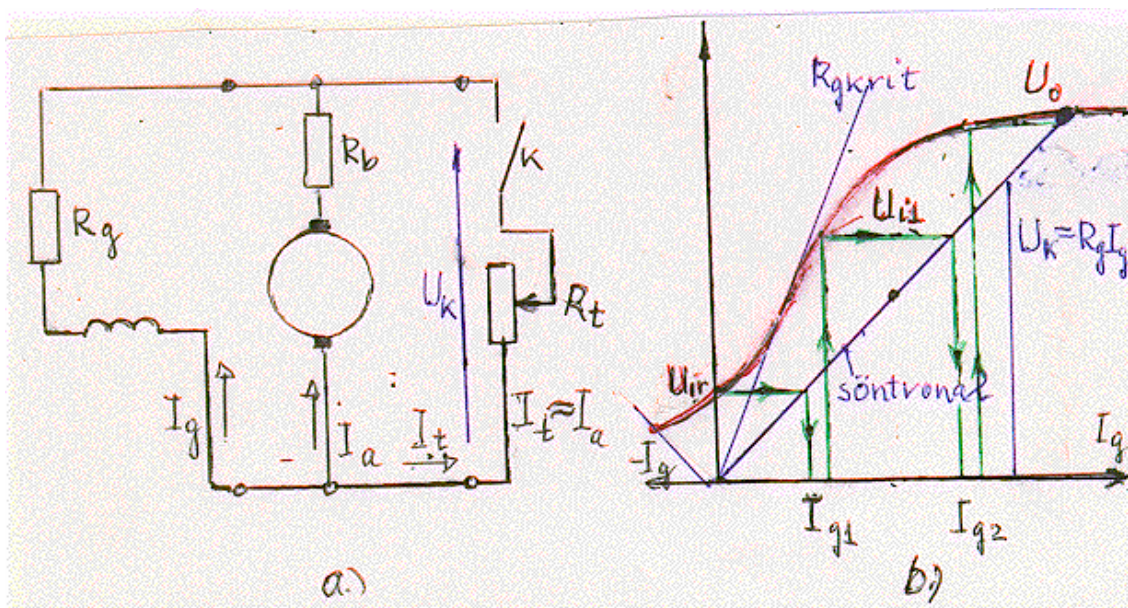 Rg
Rb
K
UK
Rt
Ig
Ia
It
It≈Ia
a.)
Rgkrit
U0
Ui1
UK=RgIg
Uir
söntvonal
-Ig
Ig
Ig1
Ig2
b.)